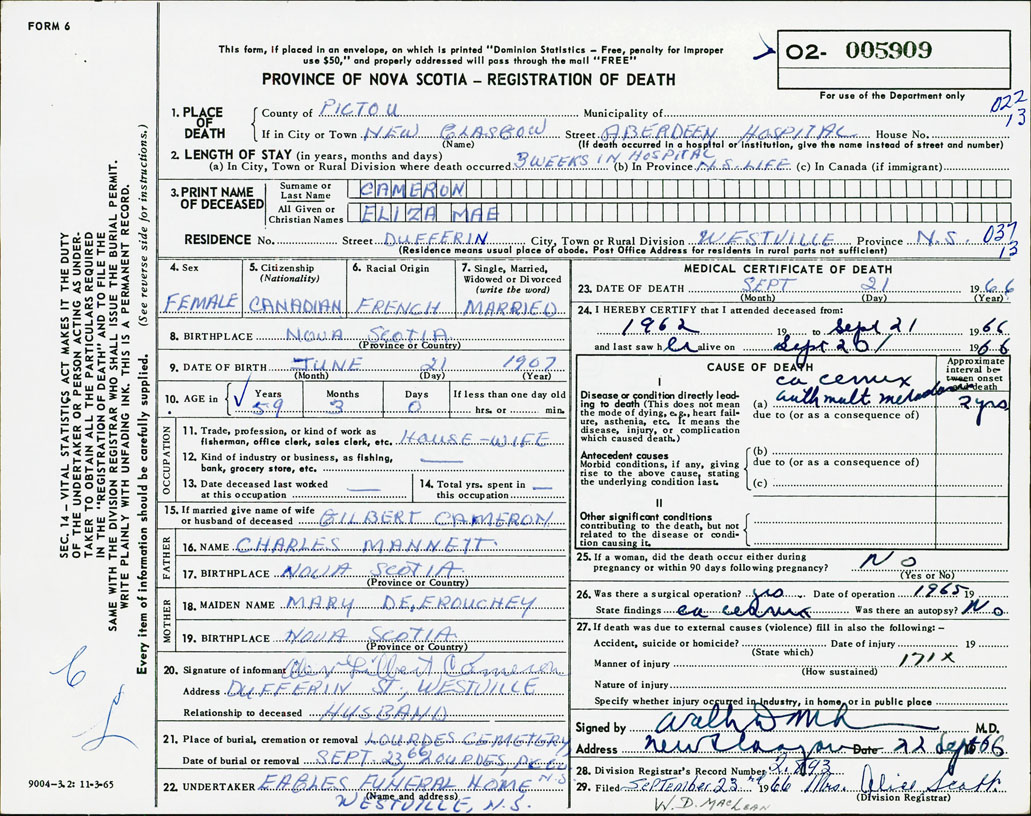 FORM 6
This form, if placed in an envelope, on which is printed "Dominion Statistics – Free, penalty for improper
use $50," and properly addressed will pass through the mail "FREE"
PROVINCE OF NOVA SCOTIA – REGISTRATION OF DEATH
02- 005909
For use of the Department only
022
13
1. PLACE OF DEATH
County of PICTOU Municipality of
If in City or Town NEW GLASGOW Street ABERDEEN HOSPITAL House No.
(Name) (If death occurred in a hospital or institution, give the name instead of street and number)
2. LENGTH OF STAY (in years, months and days)
(a) In City, Town or Rural Division where death occurred 3 WEEKS IN HOSPITAL (b) In Province N.S. LIFE (c) In Canada (if immigrant)
3. PRINT NAME OF DECEASED
Surname or Last Name CAMERON
All Given or Christian Names ELIZA MAE
RESIDENCE No. Street DUFFERIN City, Town or Rural Division WESTVILLE Province N.S. 037
13
(Residence means usual place of abode. Post Office Address for residents in rural parts not sufficient)
4. Sex FEMALE
5. Citizenship (Nationality) CANADIAN
6. Racial Origin FRENCH
7. Single, Married, Widowed or Divorced (write the word) MARRIED
8. BIRTHPLACE NOVA SCOTIA
(Province or Country)
9. DATE OF BIRTH JUNE 21 1907
(Month) (Day) (Year)
10. AGE in Years Months Days If less than one day old
59 3 0 hrs. or min.
OCCUPATION
11. Trade, profession, or kind of work as
fisherman, office clerk, sales clerk, etc. HOUSE-WIFE
12. Kind of industry or business, as fishing,
bank, grocery store, etc. —
13. Date deceased last worked
at this occupation —
14. Total yrs. spent in
this occupation —
15. If married give name of wife
or husband of deceased GILBERT CAMERON
FATHER
16. NAME CHARLES MANNETT
17. BIRTHPLACE NOVA SCOTIA
(Province or Country)
MOTHER
18. MAIDEN NAME MARY DE,FROUCHEY
19. BIRTHPLACE NOVA SCOTIA
(Province or Country)
20. Signature of informant Gilbert Cameron
Address DUFFERIN ST., WESTVILLE
Relationship to deceased HUSBAND
21. Place of burial, cremation or removal LOURDES CEMETERY
Date of burial or removal SEPT 23, 66 LOURDES N.S.
22. UNDERTAKER EAGLES FUNERAL HOME
(Name and address)
WESTVILLE, N.S.
MEDICAL CERTIFICATE OF DEATH
23. DATE OF DEATH SEPT 21 1966
(Month) (Day) (Year)
24. I HEREBY CERTIFY that I attended deceased from:
1962 19 to Sept 21 1966
and last saw her alive on Sept 20 1966
CAUSE OF DEATH
Approximate interval between onset and death
I
Disease or condition directly leading to death (This does not mean
the mode of dying, e.g., heart failure, asthenia, etc. It means the
disease, injury, or complication
which caused death.)
(a) ca cervix
with mult 2 yrs
due to (or as a consequence of)
Antecedent causes
Morbid conditions, if any, giving
rise to the above cause, stating
the underlying condition last.
(b)
due to (or as a consequence of)
(c)
II
Other significant conditions
contributing to the death, but not
related to the disease or condition causing it.
25. If a woman, did the death occur either during
pregnancy or within 90 days following pregnancy? No
(Yes or No)
26. Was there a surgical operation? yes Date of operation 1965 19
State findings ca cervix Was there an autopsy? No
27. If death was due to external causes (violence) fill in also the following:–
Accident, suicide or homicide? Date of injury 19
(State which)
Manner of injury 171X
(How sustained)
Nature of injury
Specify whether injury occurred in Industry, in home, or in public place
Signed by M.D.
Address New Glasgow Date 22 Sept 66
28. Division Registrar's Record Number
29. Filed September 23rd 1966 Mrs. Alice Scott
(Division Registrar)
W.D. MacLean
SEC. 14 – VITAL STATISTICS ACT MAKES IT THE DUTY
OF THE UNDERTAKER OR PERSON ACTING AS UNDER-
TAKER TO OBTAIN ALL THE PARTICULARS REQUIRED
IN THE "REGISTRATION OF DEATH" AND TO FILE THE
SAME WITH THE DIVISION REGISTRAR WHO SHALL ISSUE THE BURIAL PERMIT.
WRITE PLAINLY WITH UNFADING INK. THIS IS A PERMANENT RECORD.
Every item of information should be carefully supplied. (See reverse side for instructions.)
9004-3.2: 11-3-65